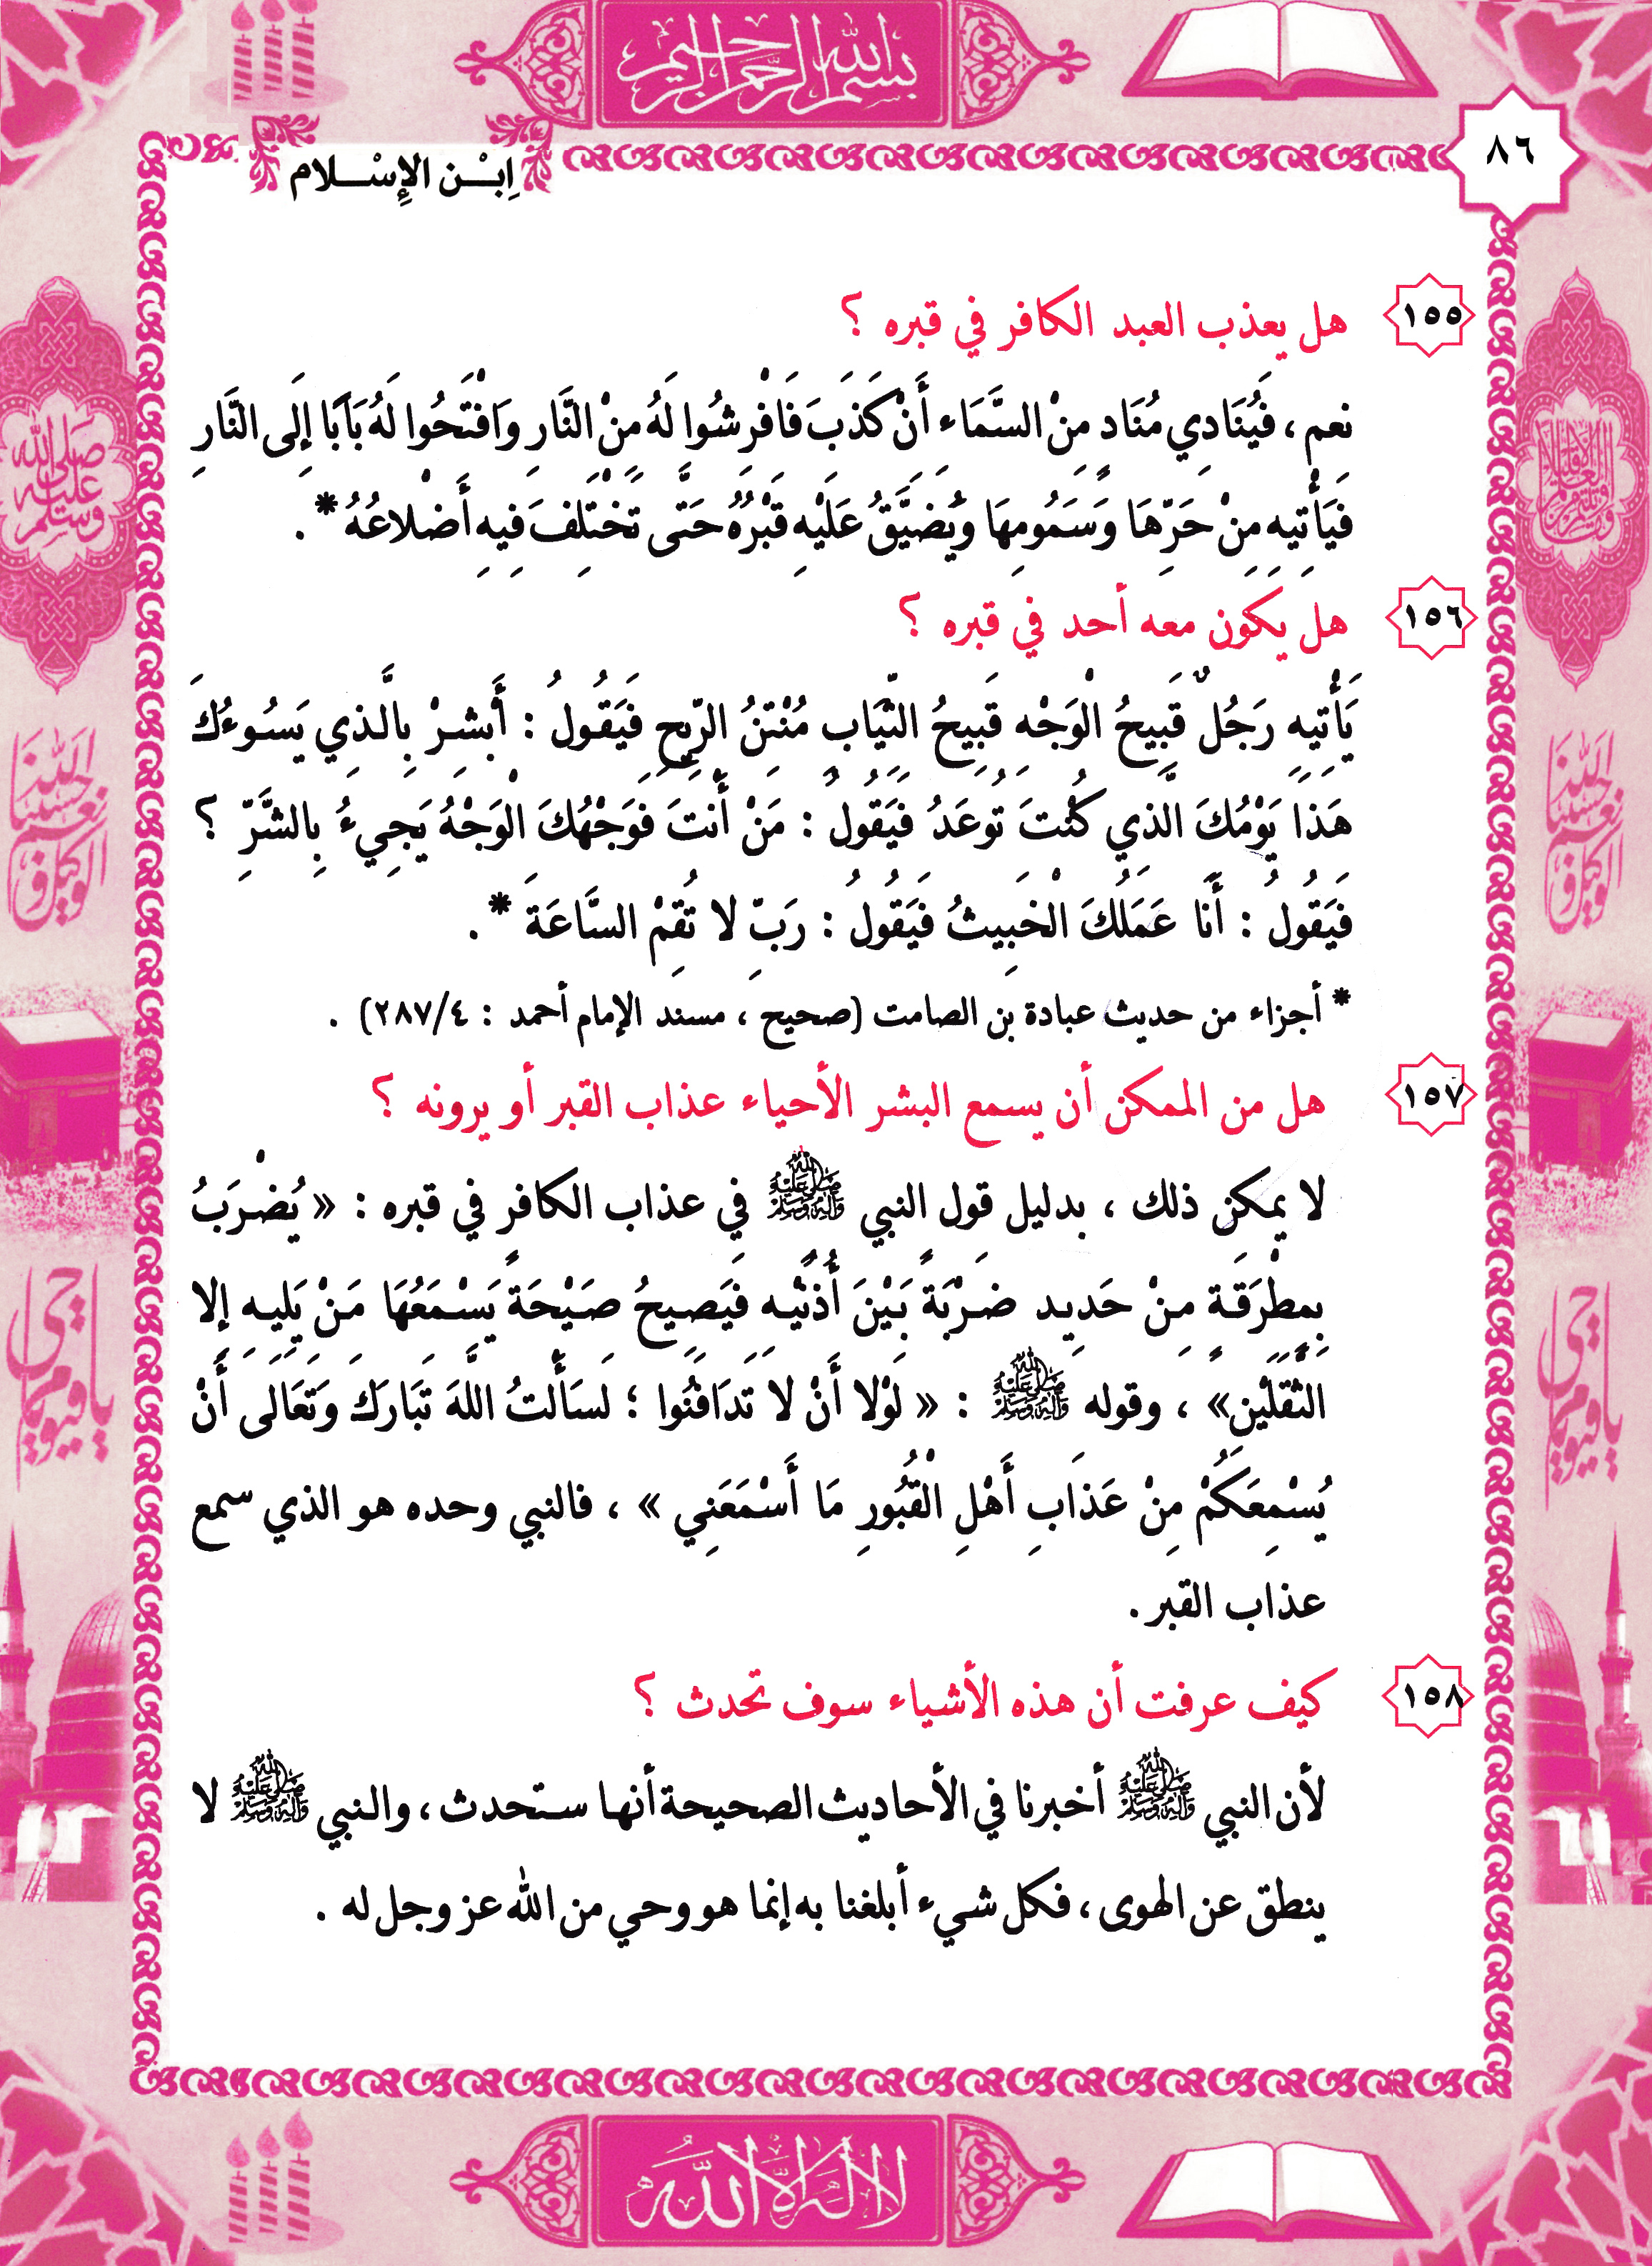 بسم الله الرحمن الرحيم
٨٦
اِبْـن الإِسْـلام
١٥٥ هل يعذب العبد الكافر في قبره ؟
نعم ، فَيُنَادِي مُنَادٍ مِنْ السَّمَاءِ أَنْ كَذَبَ فَافْرِشُوا لَهُ مِنْ النَّارِ وَافْتَحُوا لَهُ بَابًا إِلَى النَّارِ
فَيَأْتِيهِ مِنْ حَرِّهَا وَسَمُومِهَا وَيُضَيَّقُ عَلَيْهِ قَبْرُهُ حَتَّى تَخْتَلِفَ فِيهِ أَضْلاعُهُ * .
١٥٦ هل يكون معه أحد في قبره ؟
يَأْتِيهِ رَجُلٌ قَبِيحُ الْوَجْهِ قَبِيحُ الثِّيَابِ مُنْتِنُ الرِّيحِ فَيَقُولُ : أَبْشِرْ بِالَّذِي يَسُوءُكَ
هَذَا يَوْمُكَ الَّذِي كُنْتَ تُوعَدُ فَيَقُولُ : مَنْ أَنْتَ فَوَجْهُكَ الْوَجْهُ يَجِيءُ بِالشَّرِّ ؟
فَيَقُولُ : أَنَا عَمَلُكَ الْخَبِيثُ فَيَقُولُ : رَبِّ لا تُقِمْ السَّاعَةَ * .
* أجزاء من حديث عبادة بن الصامت (صحيح ، مسند الإمام أحمد : ٢٨٧/٤) .
١٥٧ هل من الممكن أن يسمع البشر الأحياء عذاب القبر أو يرونه ؟
لا يمكن ذلك ، بدليل قول النبي ﷺ في عذاب الكافر في قبره : « يُضْرَبُ
بِمِطْرَقَةٍ مِنْ حَدِيدٍ ضَرْبَةً بَيْنَ أُذُنَيْهِ فَيَصِيحُ صَيْحَةً يَسْمَعُهَا مَنْ يَلِيهِ إِلا
الثَّقَلَيْنِ» ، وقوله ﷺ : « لَوْلا أَنْ لا تَدَافَنُوا ؛ لَسَأَلْتُ اللَّهَ تَبَارَكَ وَتَعَالَى أَنْ
يُسْمِعَكُمْ مِنْ عَذَابِ أَهْلِ الْقُبُورِ مَا أَسْمَعَنِي » ، فالنبي وحده هو الذي سمع
عذاب القبر .
١٥٨ كيف عرفت أن هذه الأشياء سوف تحدث ؟
لأن النبي ﷺ أخبرنا في الأحاديث الصحيحة أنها ستحدث ، والنبي ﷺ لا
ينطق عن الهوى ، فكل شيء أبلغنا به إنما هو وحي من الله عز وجل له .
لا إله إلا الله
صلى الله عليه وسلم
حسبنا الله ونعم الوكيل
حسبنا الله ونعم الوكيل
يا حي يا قيوم
يا حي يا قيوم